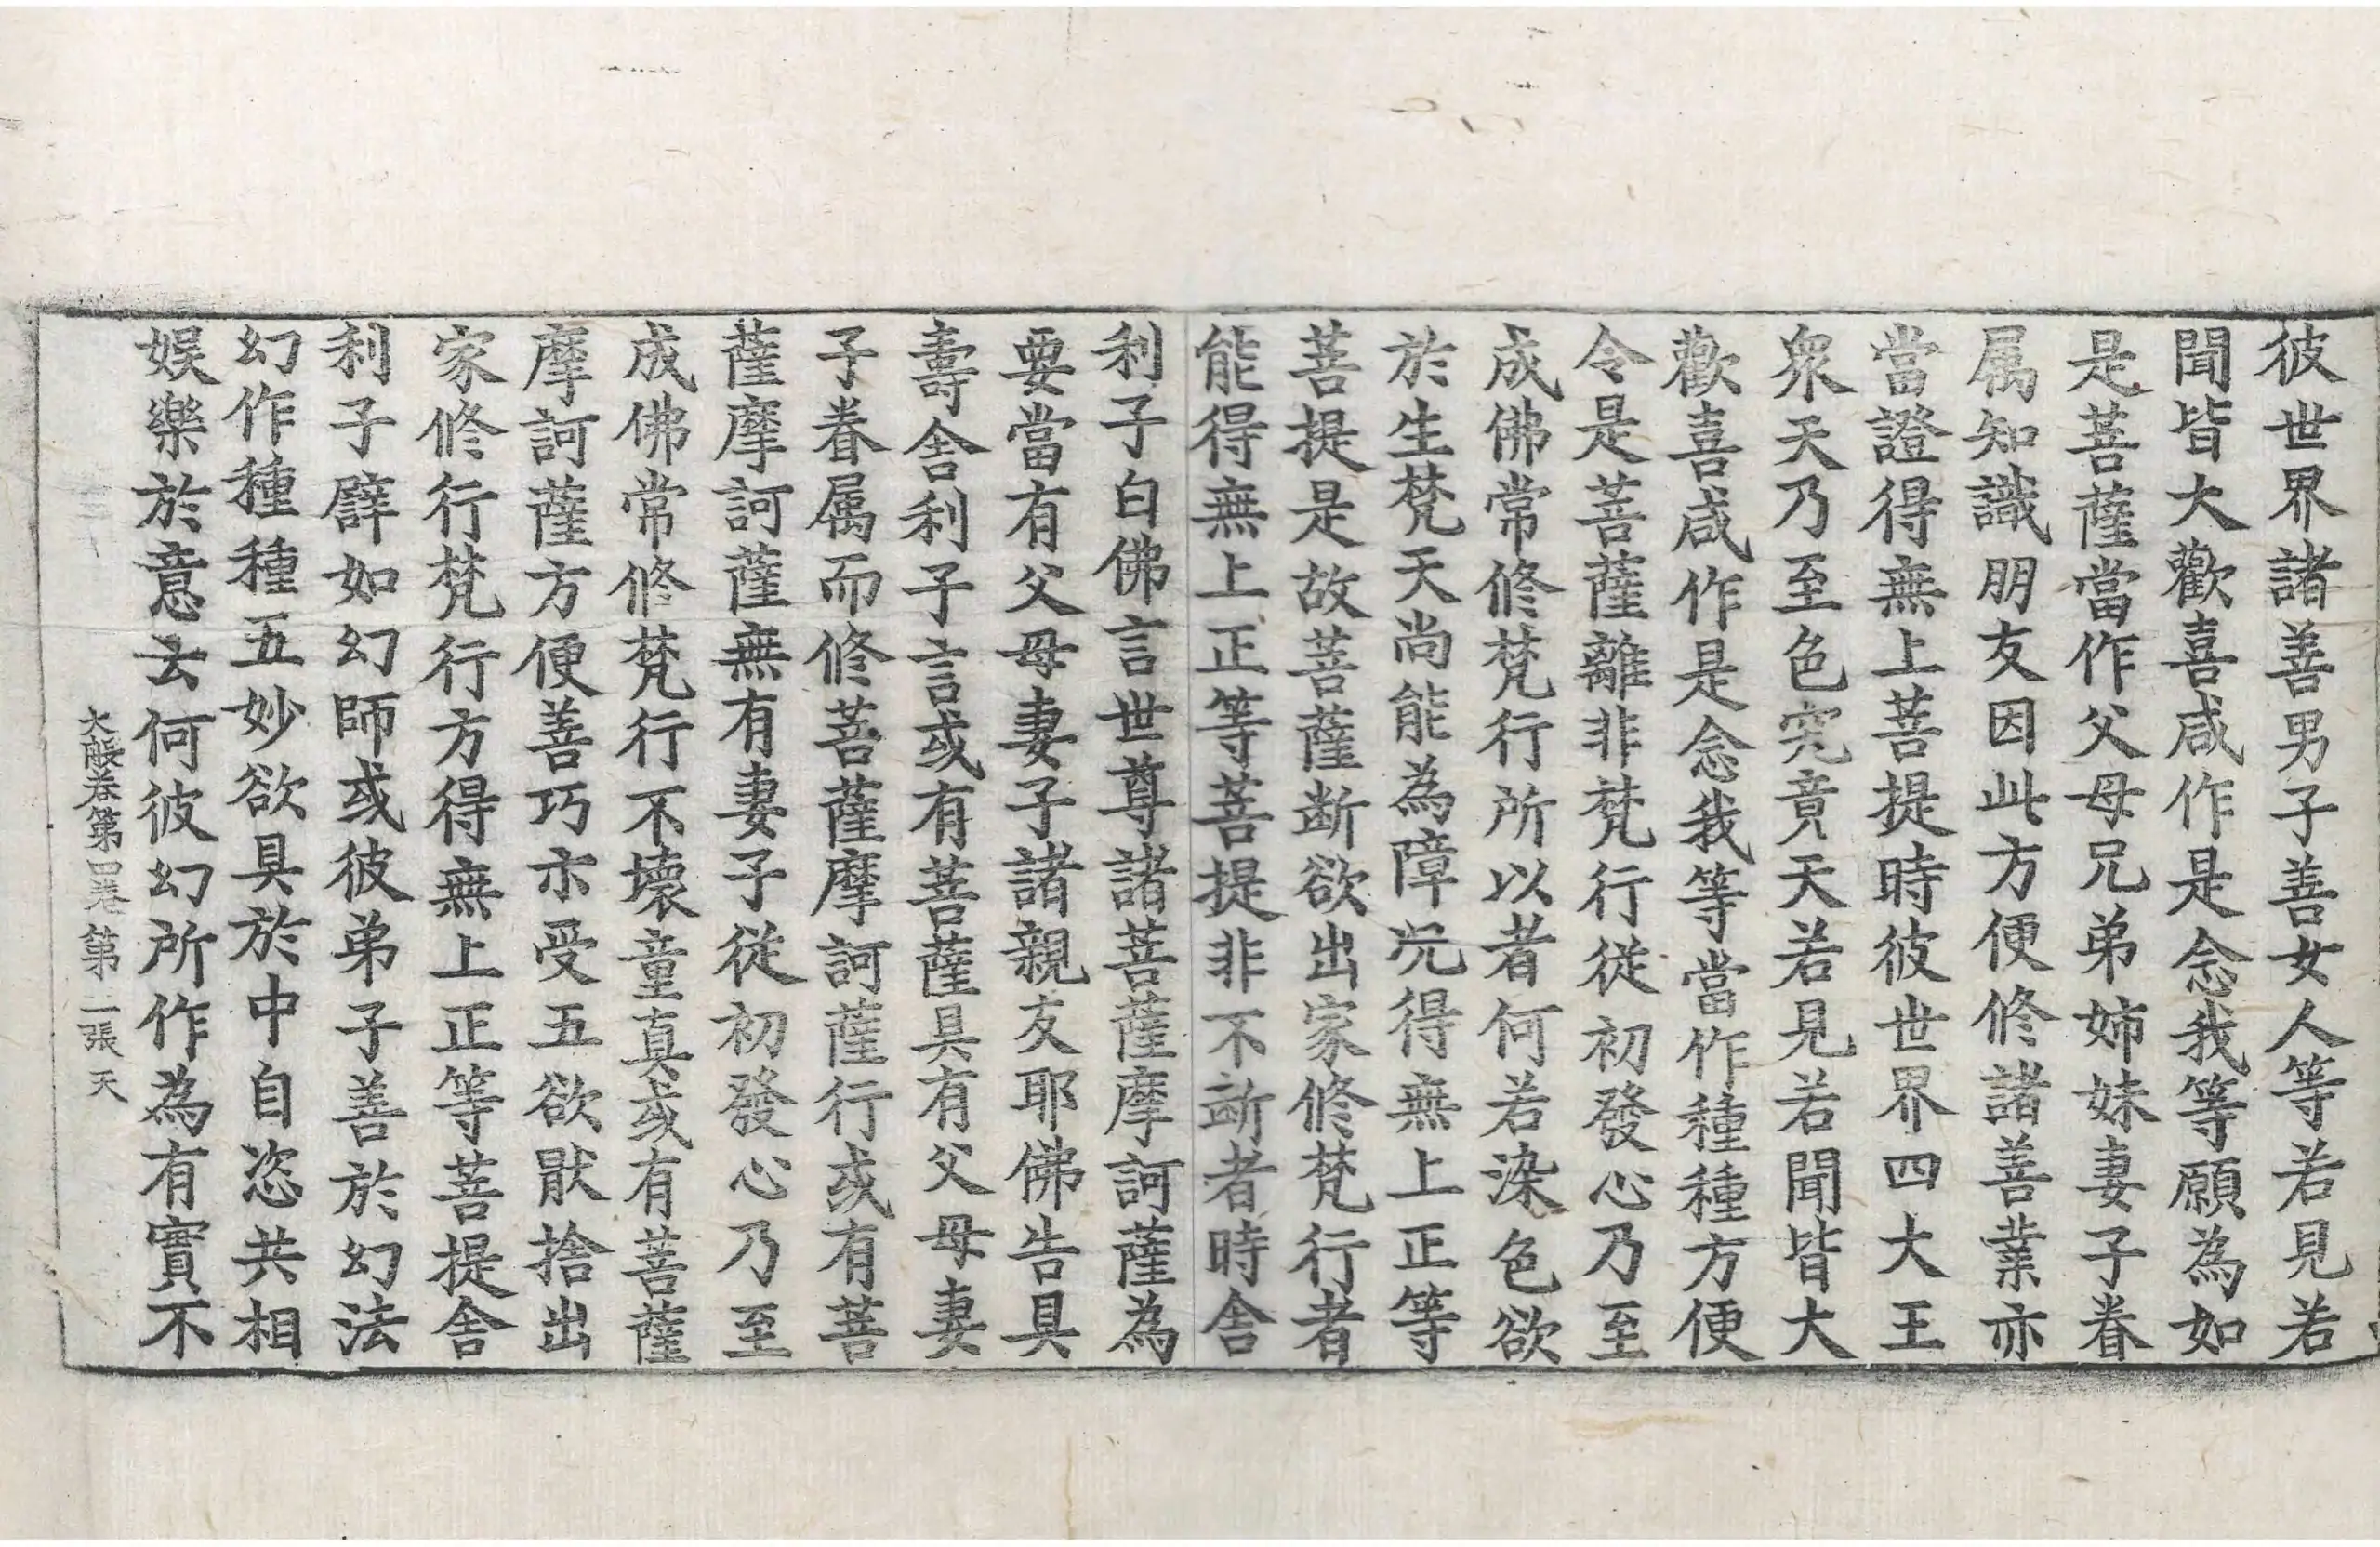 彼世界諸善男子善女人等若見若
聞皆大歡喜咸作是念我等願為如
是菩薩當作父母兄弟姉妹妻子眷
属知識朋友因此方便修諸善業亦
當證得無上菩提時彼世界四大王
衆天乃至色究竟天若見若聞皆大
歡喜咸作是念我等當作種種方便
令是菩薩離非梵行從初發心乃至
成佛常修梵行所以者何若染色欲
於生梵天尚能為障况得無上正等
菩提是故菩薩断欲出家修梵行者
能得無上正等菩提非不断者時舍
利子白佛言世尊諸菩薩摩訶薩為
要當有父母妻子諸親友耶佛告具
壽舍利子言或有菩薩具有父母妻
子眷属而修菩薩摩訶薩行或有菩
薩摩訶薩無有妻子從初發心乃至
成佛常修梵行不壞童真或有菩薩
摩訶薩方便善巧亦受五欲猒捨出
家修行梵行方得無上正等菩提舍
利子譬如幻師或彼弟子善於幻法
幻作種種五妙欲具於中自恣共相
娱樂於意云何彼幻所作為有實不
大般卷第四卷 第二張 天